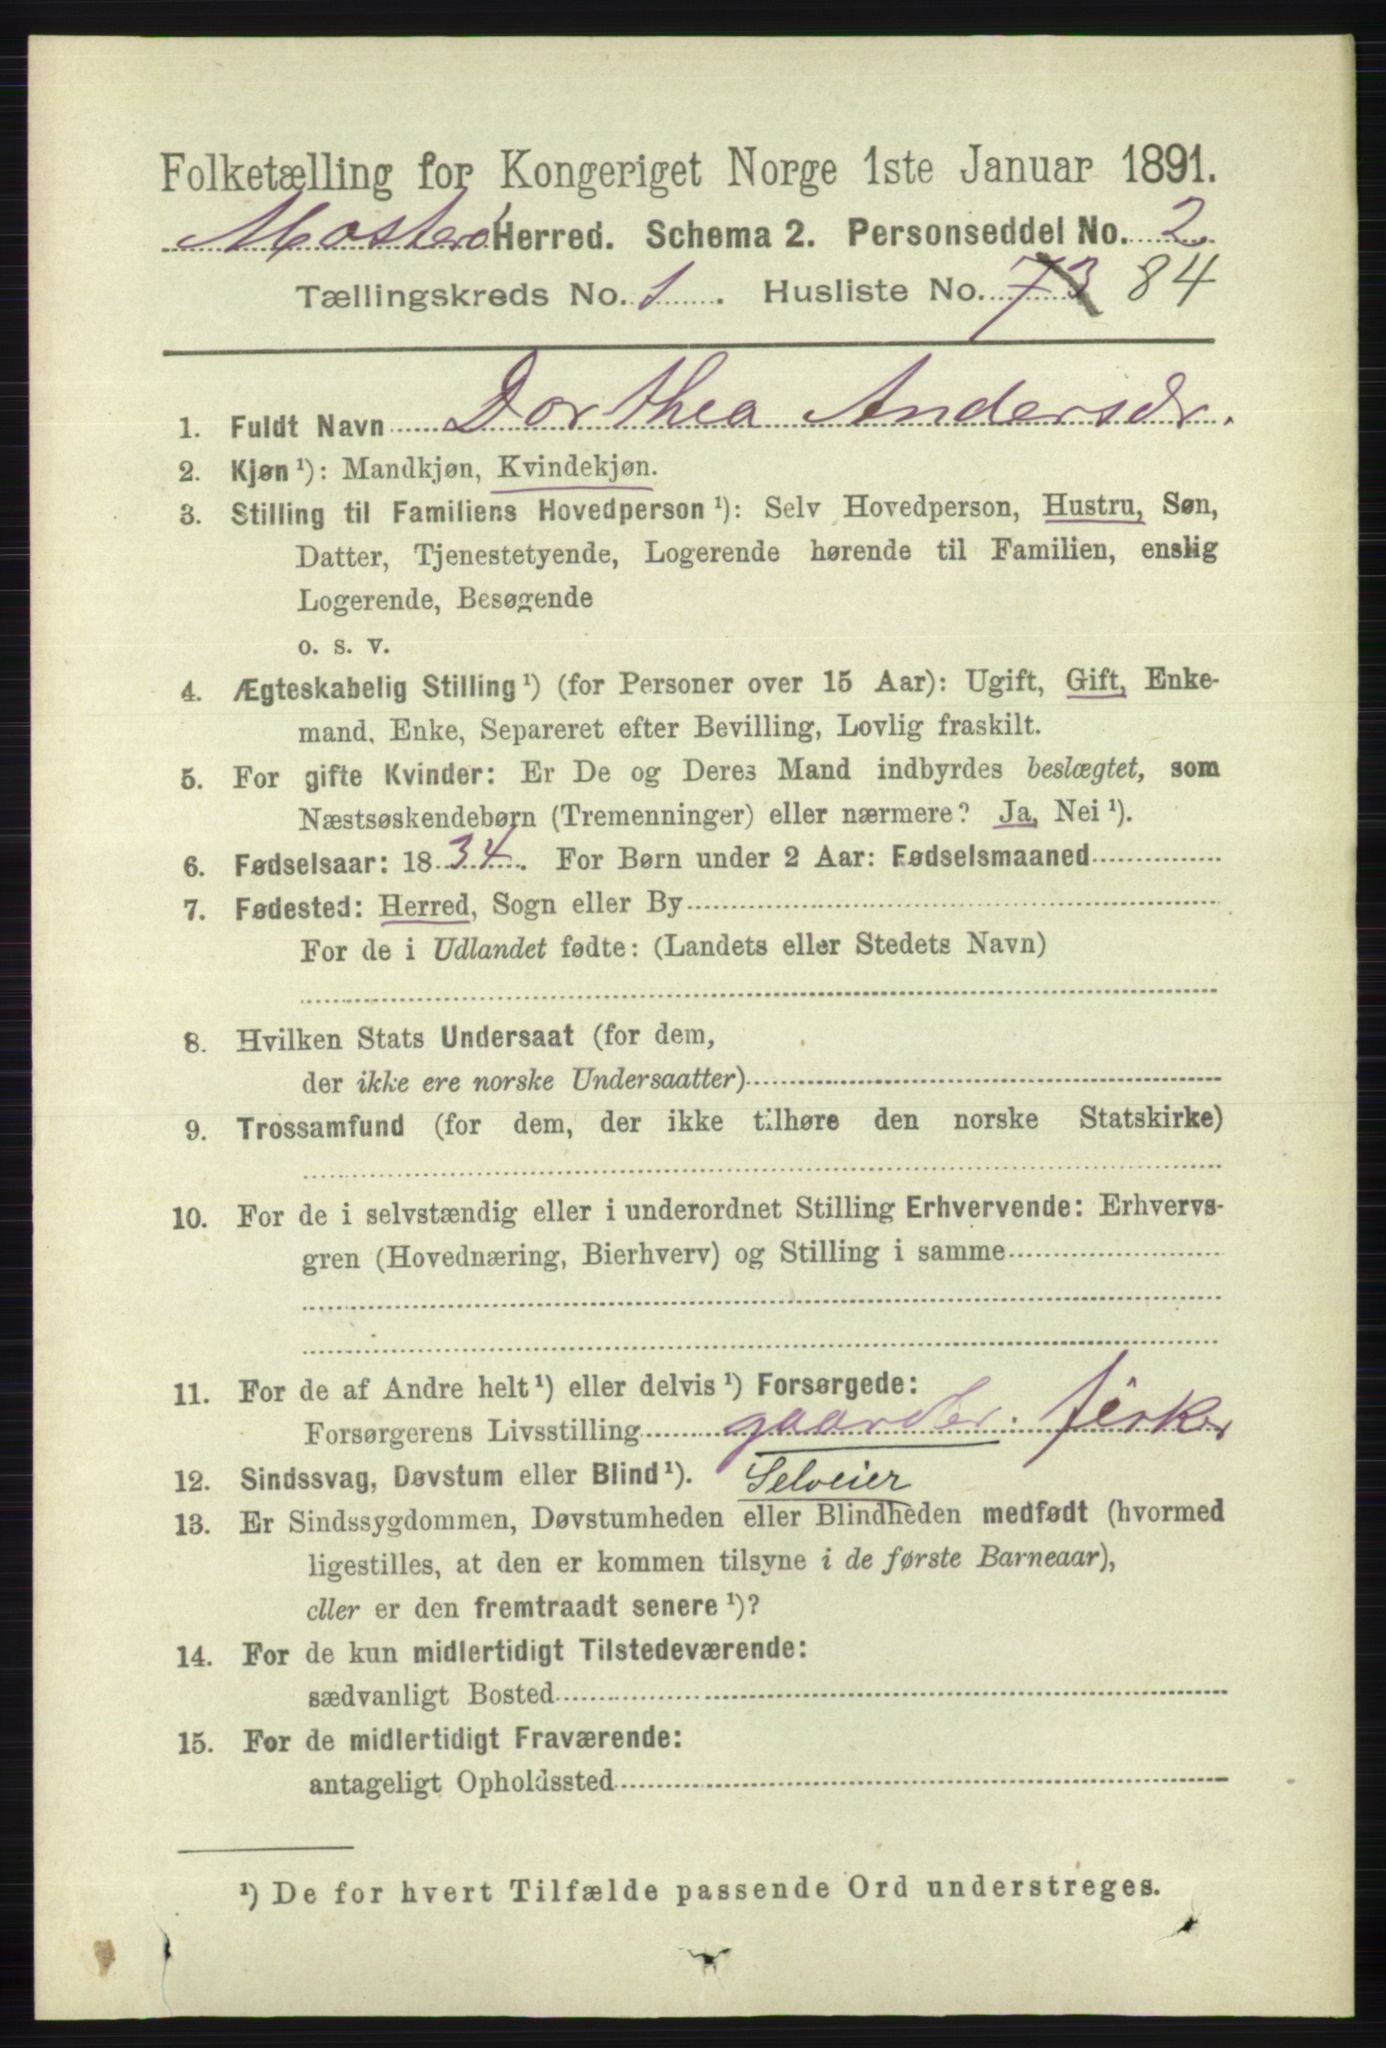 Folketælling for Kongeriget Norge 1ste Januar 1891.
Mosterø Herred. Schema 2. Personseddel No. 2
Tællingskreds No. 1. Husliste No. 73 84
1. Fuldt Navn Dorthea Andersdr.
2. Kjøn ¹): Mandkjøn, Kvindekjøn.
3. Stilling til Familiens Hovedperson ¹): Selv Hovedperson, Hustru, Søn,
Datter, Tjenestetyende, Logerende hørende til Familien, enslig
Logerende, Besøgende
o. s. v.
4. Ægteskabelig Stilling ¹) (for Personer over 15 Aar): Ugift, Gift, Enke-
mand, Enke, Separeret efter Bevilling, Lovlig fraskilt.
5. For gifte Kvinder: Er De og Deres Mand indbyrdes beslægtet, som
Næstsøskendebørn (Tremenninger) eller nærmere? Ja, Nei ¹).
6. Fødselsaar: 1834. For Børn under 2 Aar: Fødselsmaaned
7. Fødested: Herred, Sogn eller By
For de i Udlandet fødte: (Landets eller Stedets Navn)
8. Hvilken Stats Undersaat (for dem,
der ikke ere norske Undersaatter)
9. Trossamfund (for dem, der ikke tilhøre den norske Statskirke)
10. For de i selvstændig eller i underordnet Stilling Erhvervende: Erhvervs-
gren (Hovednæring, Bierhverv) og Stilling i samme
11. For de af Andre helt ¹) eller delvis ¹) Forsørgede:
Forsørgerens Livsstilling gaarder. fisker
12. Sindssvag, Døvstum eller Blind ¹). Selveier
13. Er Sindssygdommen, Døvstumheden eller Blindheden medfødt (hvormed
ligestilles, at den er kommen tilsyne i de første Barneaar),
eller er den fremtraadt senere ¹)?
14. For de kun midlertidigt Tilstedeværende:
sædvanligt Bosted
15. For de midlertidigt Fraværende:
antageligt Opholdssted
¹) De for hvert Tilfælde passende Ord understreges.